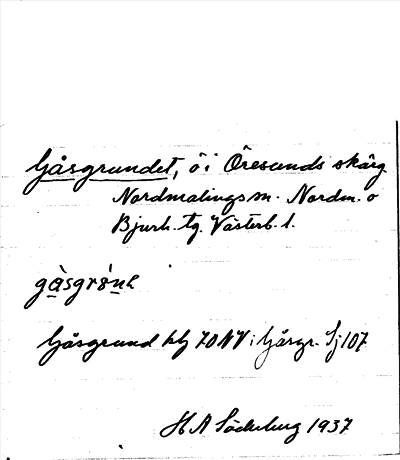 Gåsgrundet, ö i Öresunds skärg.
Nordmalings sn. Nordm. o
Bjurh. tg. Västerb. l.
gåsgrönn
Gåsgrund blz 70 NV i Gåsgr. Sj 107
H A Söderberg 1937